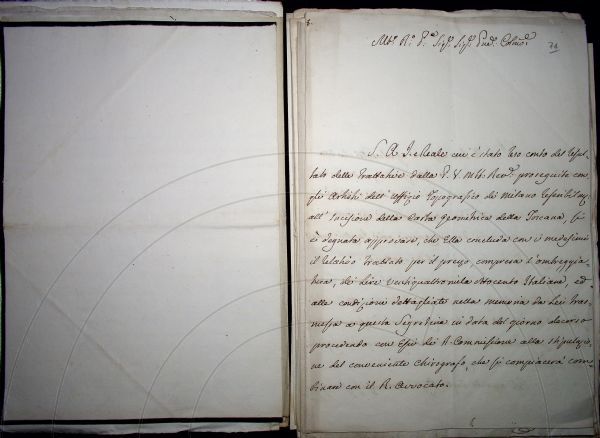 Molto R.do P.re Sig.r Sig.r Pne. Colmo.
71
S. A. I. e Reale cui è stato reso conto del resul-
tato delle trattative dalla P. V. Molto Rev.da proseguite con
gli Artisti dell'Uffizio Topografico di Milano
all'Incisione della Carta Geometrica della Toscana, si
è degnata approvare, che Ella concluda con i medesimi
il relativo trattato per il prezzo, compresa l'ombreggia-
tura, di Lire Ventiquattromila Ottocento Italiane, ed
alle condizioni dettagliate nella memoria da Lei tras-
messa a questa Segreteria in data del giorno
procedendo con Essi alla stipulazio-
ne del conveniente Chirografo, che si compiacerà com-
binare con il R. Avvocato.